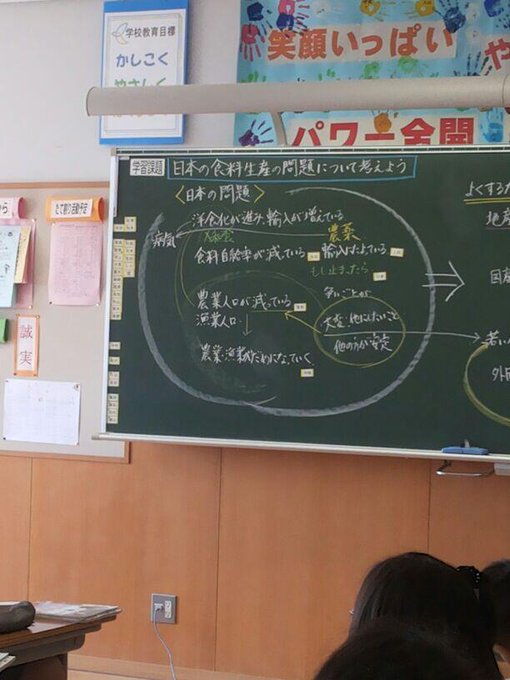 学校教育目標
かしこく
やさしく
笑顔いっぱい
パワー全開
学習課題
日本の食料生産の問題について考えよう
〈日本の問題〉
洋食化が進み、輸入が増えている
病気
農薬
食料自給率が減っている
輸入にたよっている
もし止まったら
農業人口が減っている
漁業人口
大変・他にしたいこと
他のほうが安定
農業・漁業がだめになっていく
よくするた
たて割り活動予定
から
誠実
外国